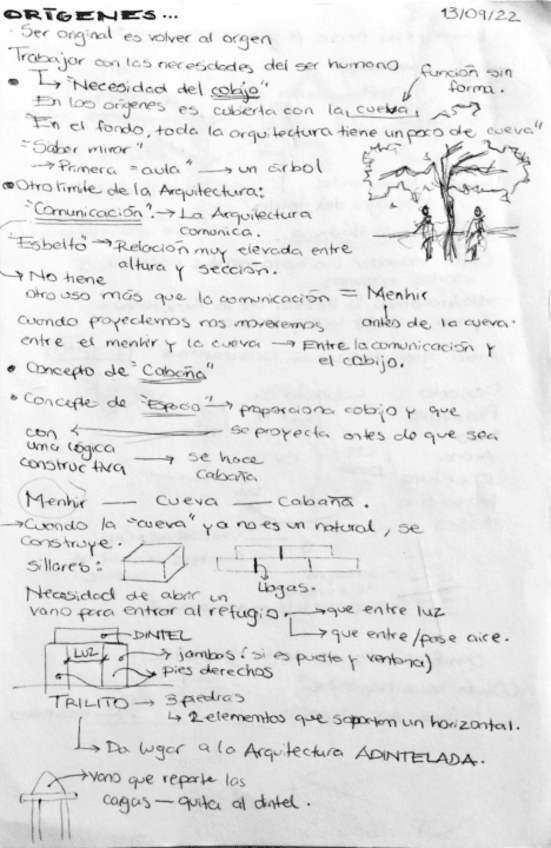 ORÍGENES... 13/09/22
Ser original es volver al orgen
Trabajar con las necesidades del ser humano
función sin
forma.
↳ "Necesidad del cobijo"
En los orígenes es cubierta con la cueva
"En el fondo, toda la arquitectura tiene un poco de cueva"
"Saber mirar"
→ Primera "aula" → un árbol
Otro límite de la Arquitectura:
"Comunicación" → La Arquitectura
comunica.
Esbelto → Relación muy elevada entre
altura y sección.
→ No tiene
otro uso más que la comunicación = Menhir
antes de la cueva.
Cuando proyectemos nos moveremos
entre el menhir y la cueva → Entre la comunicación y
el cobijo.
• Concepto de "Cabaña"
• Concepto de "Espacio" → proporciona cobijo y que
se proyecta antes de que sea
con
una lógica
constructiva → se hace
cabaña
Menhir — Cueva — Cabaña.
→ Cuando la "cueva" ya no es un natural, se
construye.
sillares:
Llagas.
Necesidad de abrir un
vano para entrar al refugio. → que entre luz
→ que entre/pase aire.
DINTEL
LUZ
→ jambas (si es puerta y ventana)
→ pies derechos
TRILITO → 3 piedras
↳ 2 elementos que soportan un horizontal.
↳ Da lugar a la Arquitectura ADINTELADA.
→ vano que reparte las
cargas — quita al dintel.